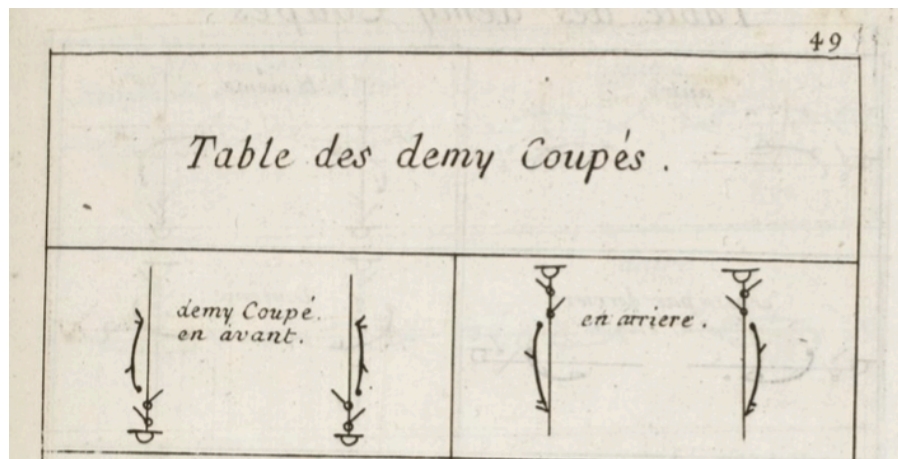 49
Table des demy Coupés .
demy Coupé.
en avant.
en arriere .